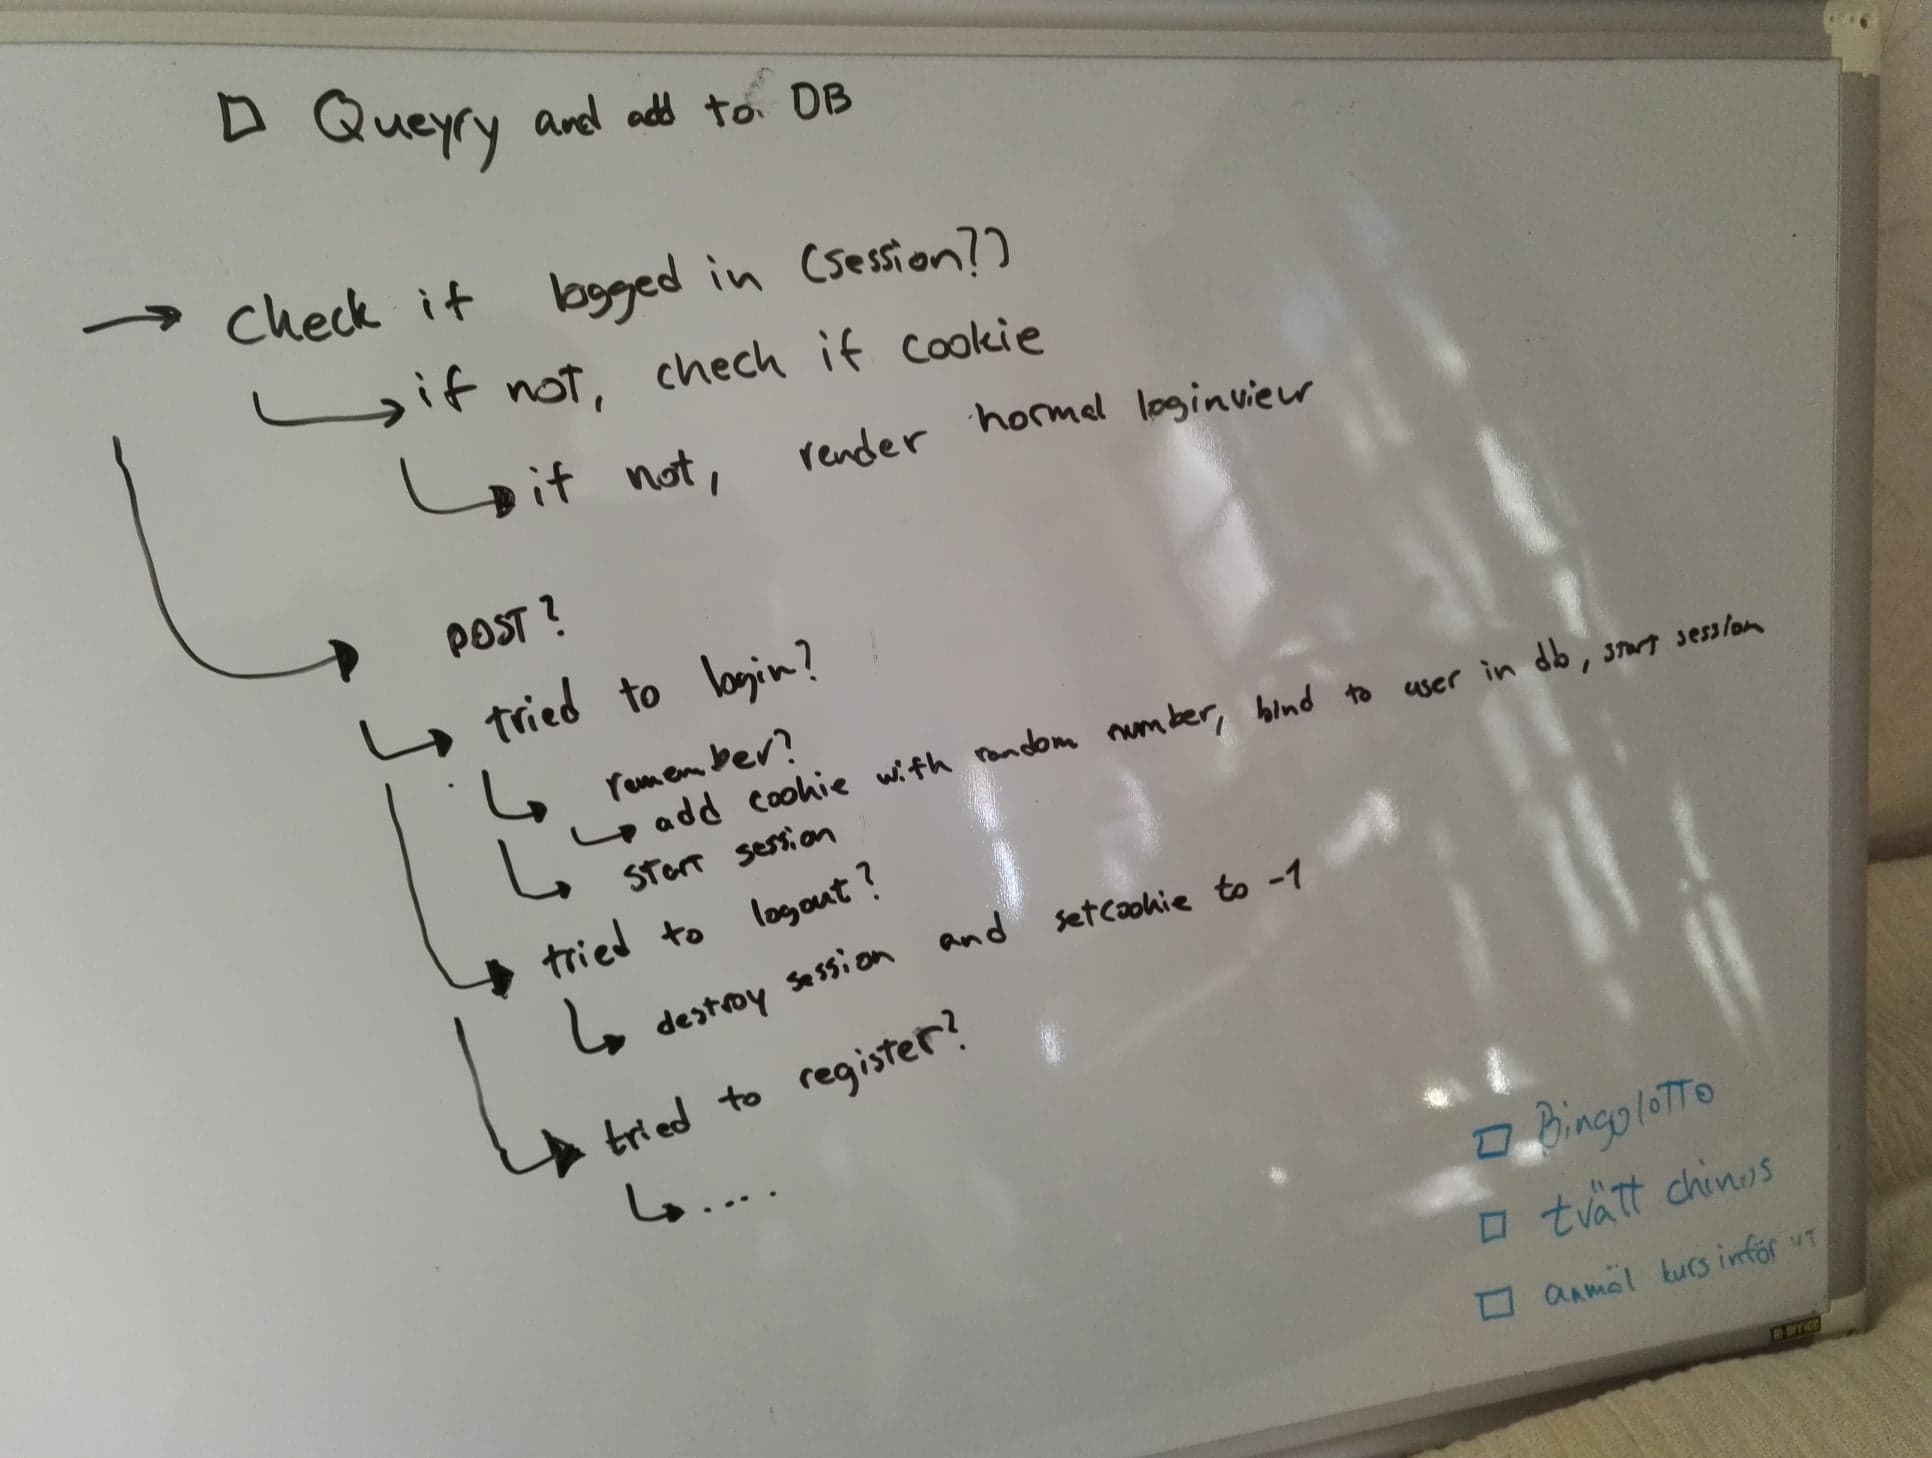 Queyry and add to DB
check if logged in (session?)
if not, chech if cookie
if not, render normal loginview
POST?
tried to login?
remember?
add cookie with random number, bind to user in db, start session
start session
tried to logout?
destroy session and setcookie to -1
tried to register?
....
Bingolotto
tvätt chinos
anmäl kurs inför VT
BI-OFFICE